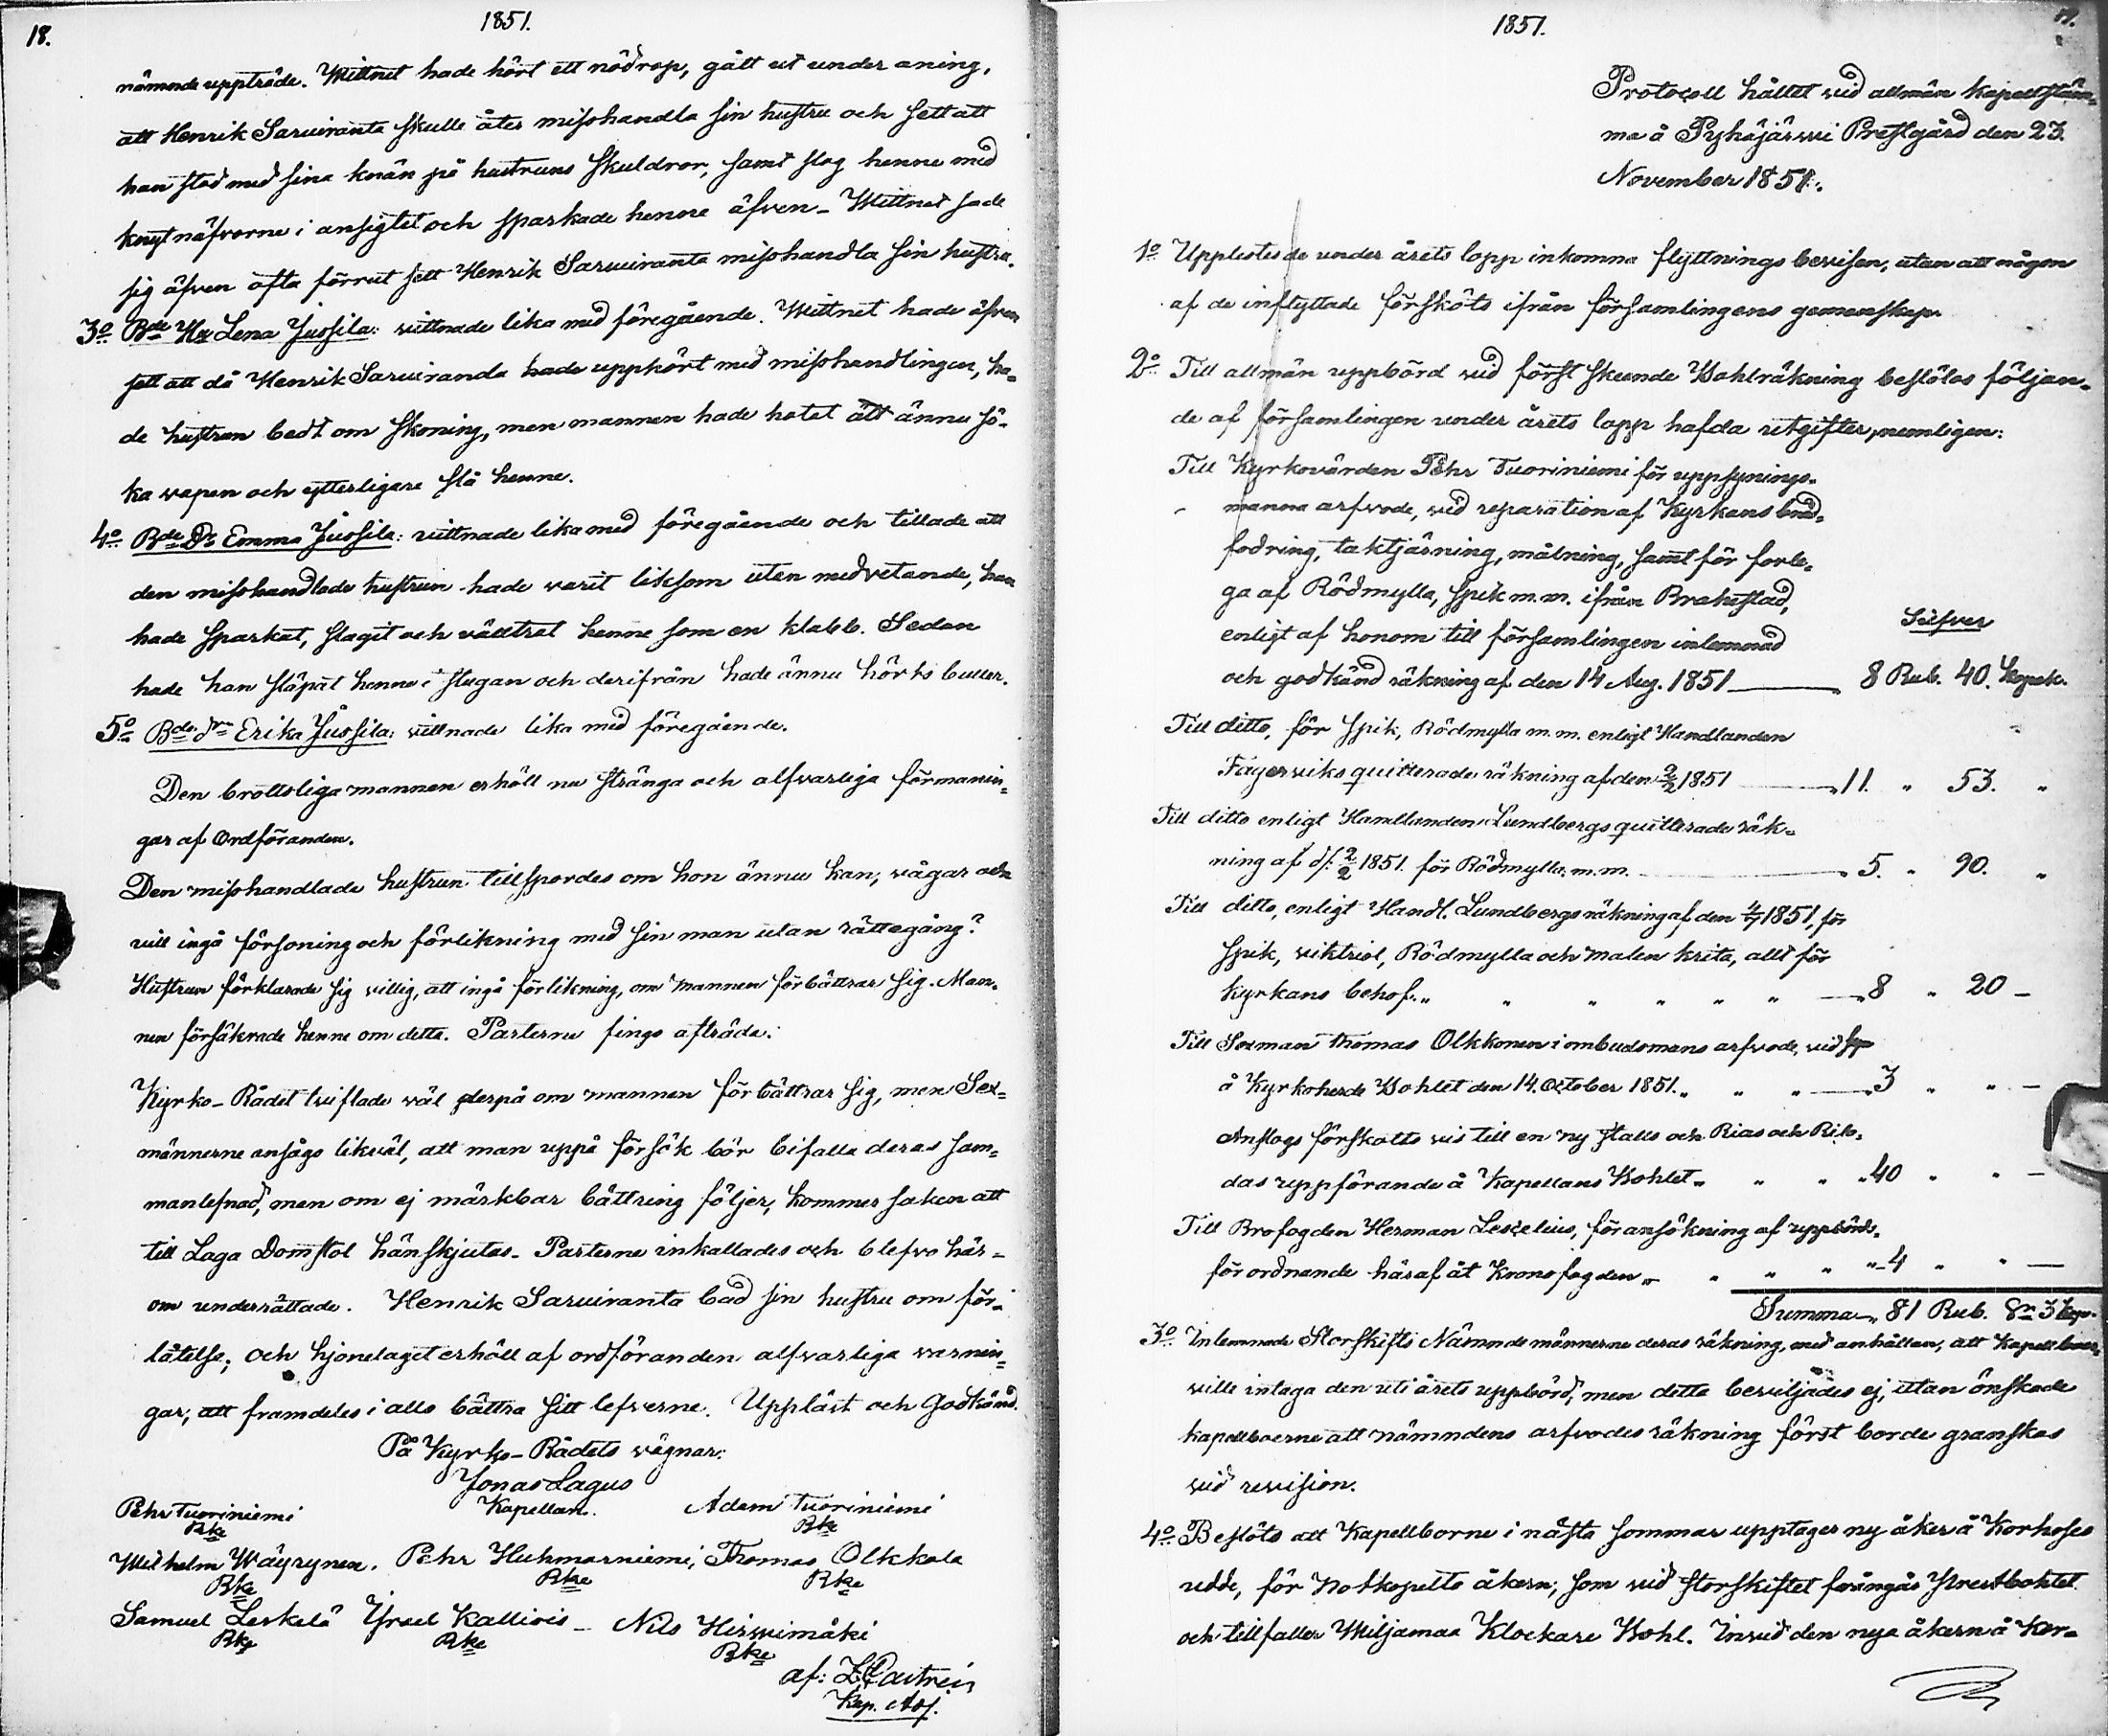 18.
1851.
nämnde uppträde. Wittnet hade hört ett nödrop, gått ut under aning,
att Henrik Saruiranta skulle åter misshandla sin hustru och sett att
han stod med sina knän på hustruns skuldror, samt slog henne med
knytnäfvarne i ansigtet och sparkade henne äfven – Wittnet sade
sig äfven ofta förrut sett Henrik Saruiranta misshandla sin hustru.
3:o Bde Hu Lena Jussila: vittnade lika med föregående. Wittnet hade äfven
sett att då Henrik Saruiranda hade upphört med misshandlingen, ha-
de hustrun bedt om skoning, men mannen hade hotat att ännu sö-
ka vapen och ytterligare slå henne.
4:o Bde Dr Emma Jussila: vittnade lika med föregående och tillade att
den misshandlade hustrun hade varit liksom utan medvetande, han
hade sparkat, slagit och vältrat henne som en klabb. Sedan
hade han släpat henne i stugan och derifrån hade ännu hörts buller.
5:o Bde Dr Erika Jussila: vittnade lika med föregående.
Den brottsliga mannen erhöll nu stränga och alfvarliga förmanin-
gar af Ordföranden.
Den misshandlade hustrun tillspordes om hon ännu kan, vågar och
vill ingå försoning och förlikning med sin man utan rättegång?
Hustrun förklarade sig villig, att ingå förlikning, om mannen förbättrar sig. Man-
nen försäkrade henne om detta. Parterne fingo afträda.
Kyrko-Rådet tviflade väl derpå om mannen förbättrar sig, men Sex-
männerne ansågo likväl, att man uppå försök bör bifalla deras sam-
manlefnad, men om ej märkbar bättring följer, kommer saken att
till Laga Domstol hänskjutas – Parterne inkallades och blefvo här-
om underrättade. Henrik Saruiranta bad sin hustru om för-
låtelse; och hjonelaget erhöll af ordföranden alfvarliga varnin-
gar, att framdeles i allo bättra sitt lefverne. Uppläst och Godkänd.
På Kyrko-Rådets vägnar:
Jonas Lagus
Kapellan.
Pehr Tuoriniemi Adam Tuoriniemi
Bke Bke
Wilhelm Wäyrynen. Pehr Huhmarniemi, Thomas Olkkola
Bke Bke Bke
Samuel Leskelä Ysrael Kalliois – Nils Hirwimäki
Bke Bke Bke
af: Z Castrén
Kap. Adj.
1851.
Protocoll hållet vid allmän kapellstäm-
ma å Pyhäjärwi Prestgård den 23.
November 1851.
1:o Upplestes de under årets lopp inkomna flyttningsbevisen, utan att någon
af de inflyttade försköts ifrån församlingens gemenskap.
2:o Till allmän uppbörd vid först skeende Bohlräkning beslötos följan-
de af församlingen under årets lopp hafda utgifter, nemligen:
Till Kyrkovärden Pehr Tuoriniemi för uppsynings-
manna arfvode, vid reparation af Kyrkans bräd-
fodring, taktjärning, målning, samt för forle-
ga af Rödmylla, spik m.m. ifrån Brahestad,
enligt af honom till församlingen inlemnad Silfver
och godkänd räkning af den 14 Aug. 1851 8 Rub. 40. Kopek.
Till ditto, för spik, Rödmylla m.m. enligt Handlanden
Fagerviks quitterade räkning af den 2/2 1851 11. " 53. "
Till ditto enligt Handlanden Lundbergs quitterade räk-
ning af d: 2/2 1851. för Rödmylla m.m. 5. " 90. "
Till ditto, enligt Handl. Lundbergs räkning af den 4/7 1851, för
spik, viktriol, Rödmylla och malen krita, allt för
Kyrkans behof. " " " " " " 8 " 20 –
Till Sexman Thomas Olkkonen i ombudsmans arfvode, vid syn
å Kyrkoherde Bohlet den 14. October 1851. " " " 3 " " –
Anslogs förskottsvis till en ny stalls och Rias och Rih-
das uppförande å Kapellans Bohlet " " " " 40 " " –
Till Brofogden Herman Leskelius, för ansökning af uppbörds-
förordnande häraf åt Kronofogden " " " " " 4 " " –
Summa 81 Rub. 8n 3 kop.
3:o Inlemnade Storskifts Nämndemännerne deras räkning, med anhållan, att Kapellboerne
ville intaga den uti årets uppbörd, men detta beviljades ej, utan önskade
kapellboerne att nämndens arfvodes räkning först borde granskas
vid revision.
4:o Beslöts att Kapellborne i nästa sommar upptager ny åker å Korhoses
udde, för Notkopelto åkern, som vid storskiftet frångås Prestbohlet
och tillfaller Wiljamaa Klockare Bohl. Invid den nya åkern å Kor-